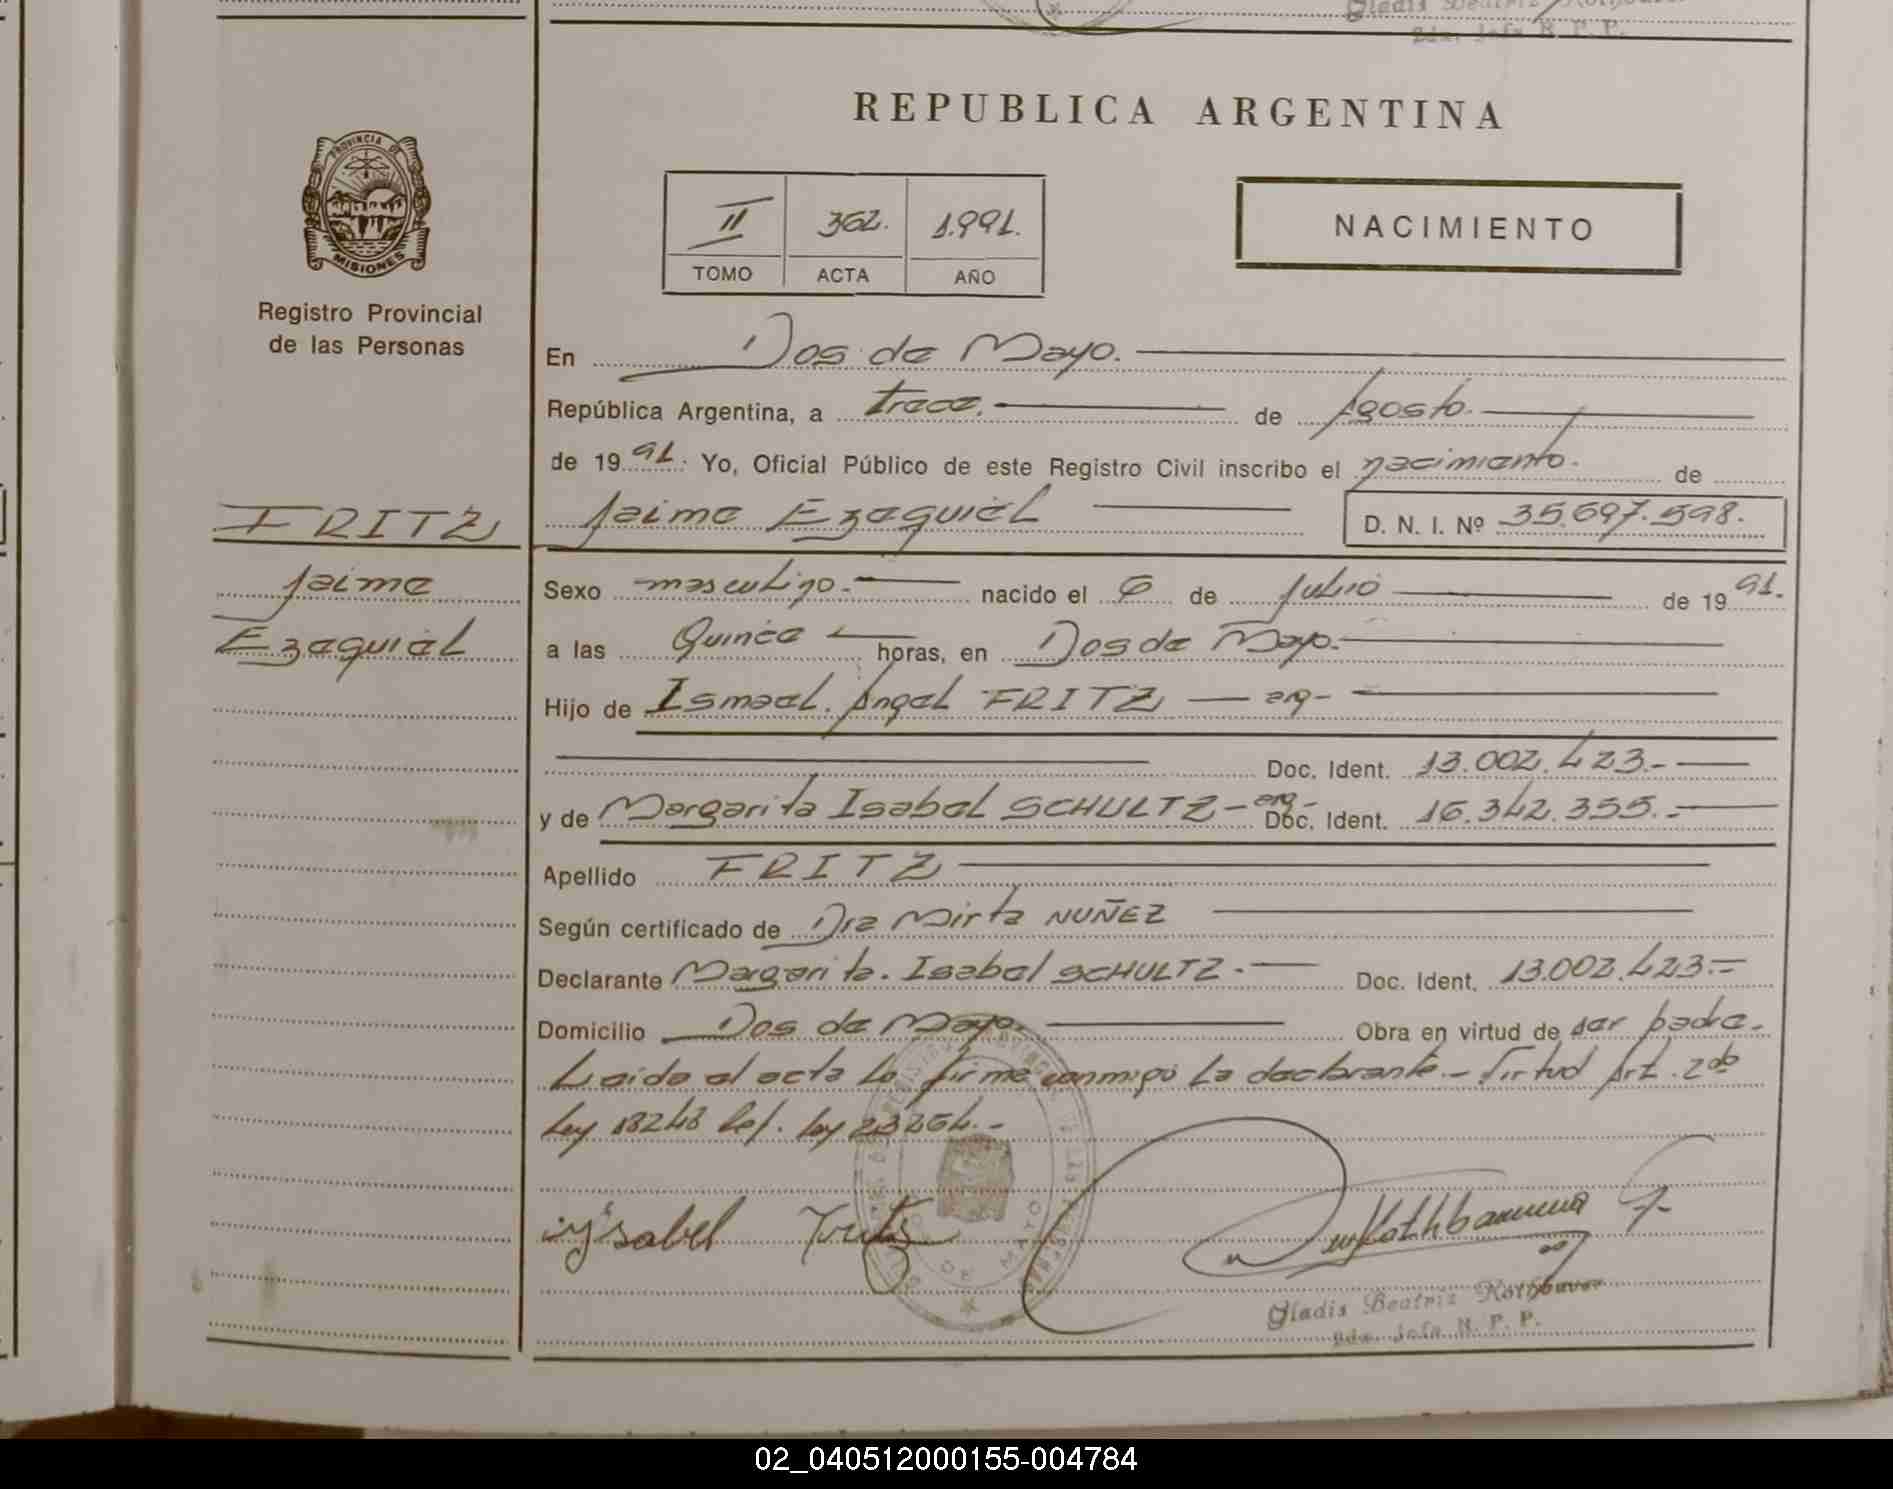 Gladis Beatriz Rothbauer
2da. Jefa R. P. P.
REPUBLICA ARGENTINA
PROVINCIA DE
MISIONES
Registro Provincial
de las Personas
II 362. 1.991.
TOMO ACTA AÑO
NACIMIENTO
En Dos de Mayo.
República Argentina, a trece. de Agosto.
de 19 91. Yo, Oficial Público de este Registro Civil inscribo el nacimiento. de
FRITZ
Jaime Ezequiel D. N. I. Nº 35.697.598.
Jaime
Ezequiel
Sexo masculino.- nacido el 6 de Julio de 19 91.
a las Quince horas, en Dos de Mayo.
Hijo de Ismael. Angel FRITZ — arg-
Doc. Ident. 13.002.423.-
y de Margarita Isabel SCHULTZ - arg- Doc. Ident. 16.342.355.-
Apellido FRITZ
Según certificado de Dra Mirta NUÑEZ
Declarante Margarita. Isabel SCHULTZ.- Doc. Ident. 13.002.423.-
Domicilio Dos de Mayo. Obra en virtud de ser padre.
Leida el acta la firma conmigo la declarante.- Virtud Art. 2do
Ley 18248 Ref. ley 23264.-
Ysabel Fritz
DE MAYO
Gladis Beatriz Rothbauer
2da. Jefa R. P. P.
02_040512000155-004784